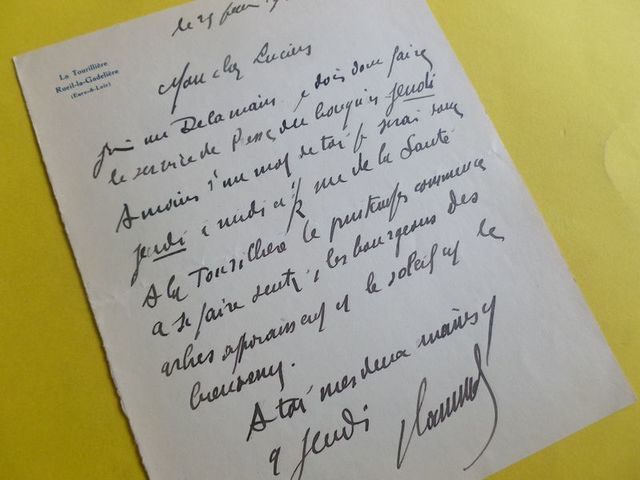 La Tourillière
Rueil-la-Gadelière
(Eure-&-Loir)
le 29
Mon cher Lucien
J'ai vu Delamain je dois donc faire
le service de Presse du bouquin jeudi
A moins d'un mot de toi je serai donc
jeudi à midi rue de la Santé
A la Tourillière le printemps commence
à se faire sentir, les bourgeons des
arbres apparaissent et le soleil et le
A toi mes deux mains et
à jeudi